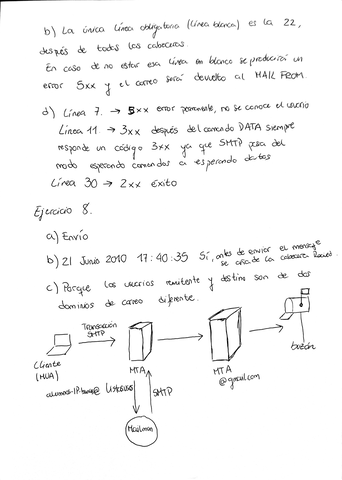 b) La única línea obligatoria (línea blanca) es la 22,
después de todas las cabeceras.
En caso de no estar esa línea en blanco se producirá un
error 5xx y el correo será devuelto al MAIL FROM.
d) Línea 7. → 5xx error permanente, no se conoce el usuario
Línea 11. → 3xx después del comando DATA siempre
responde un código 3xx ya que SMTP pasa del
modo esperando comandos a esperando datos
Línea 30 → 2xx éxito
Ejercicio 8.
a) Envío
b) 21 Junio 2010 17:40:35 Sí, antes de enviar el mensaje
se añade la cabecera
c) Porque los usuarios remitente y destino son de dos
dominios de correo diferente.
Transacción
SMTP
Cliente
(MUA)
MTA
MTA
@gmail.com
buzón
SMTP
Mailman